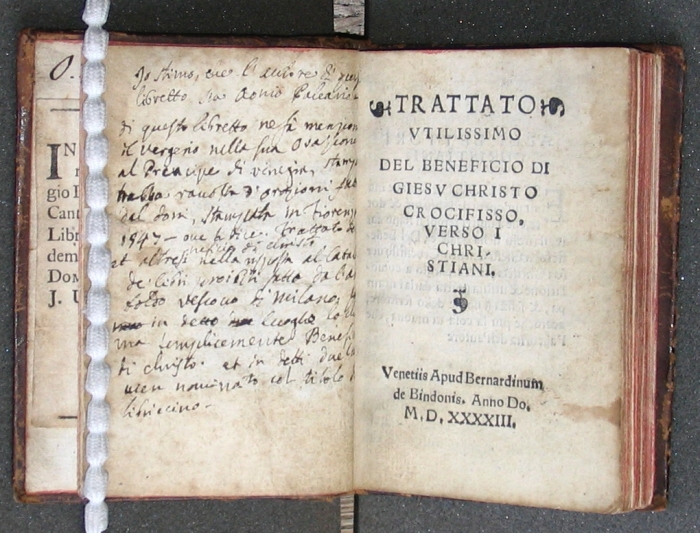 O.
IN
gio
Cant
Libr
dem
Dom
J. U
Io stimo, che l'autore di
libretto sia Aonio Paleario
di questo libretto ne fà menzion
il Vergerio nella sua
al Principe di venezia,
raccolta d'orazioni
del doni, stampata in fiorenz
1547 - ove si dice. Trattato de
et altresi nella risposta al Catal
de libri proibiti fatto da
Vescovo di Milano,
in detto luogho
ma semplicemente Benefi
di christo. et in detti due
vien nominato col titolo
libriccino.
TRATTATO
VTILISSIMO
DEL BENEFICIO DI
GIESV CHRISTO
CROCIFISSO,
VERSO I
CHRI-
STIANI.
Venetiis Apud Bernardinum
de Bindonis. Anno Do.
M. D. XXXXIII.